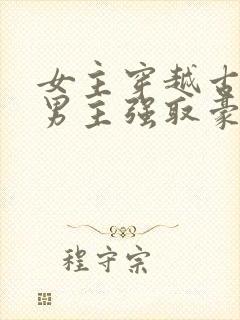 女主穿越古
男主强取豪
程守宗